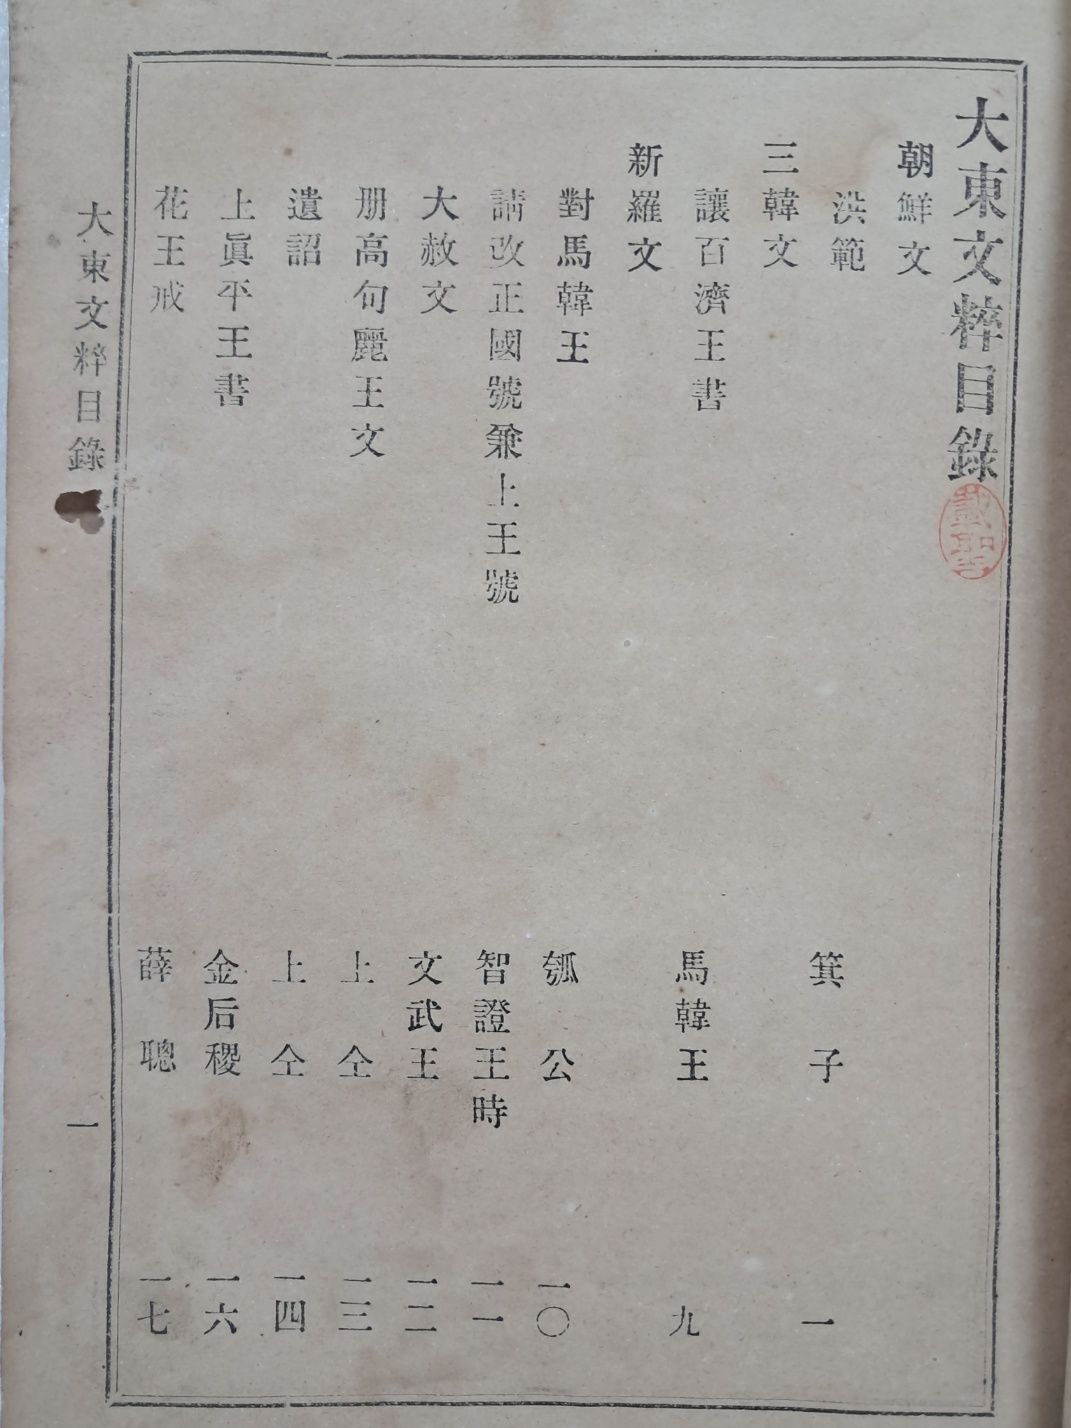 大東文粹目錄
朝鮮文
洪範 箕子 一
三韓文
讓百濟王書 馬韓王 九
新羅文
對馬韓王 瓠公 一〇
請改正國號兼上王號 智證王時 一一
大赦文 文武王 一二
册高句麗王文 上仝 一三
遺詔 上仝 一四
上眞平王書 金后稷 一六
花王戒 薛聰 一七
大東文粹目錄 一